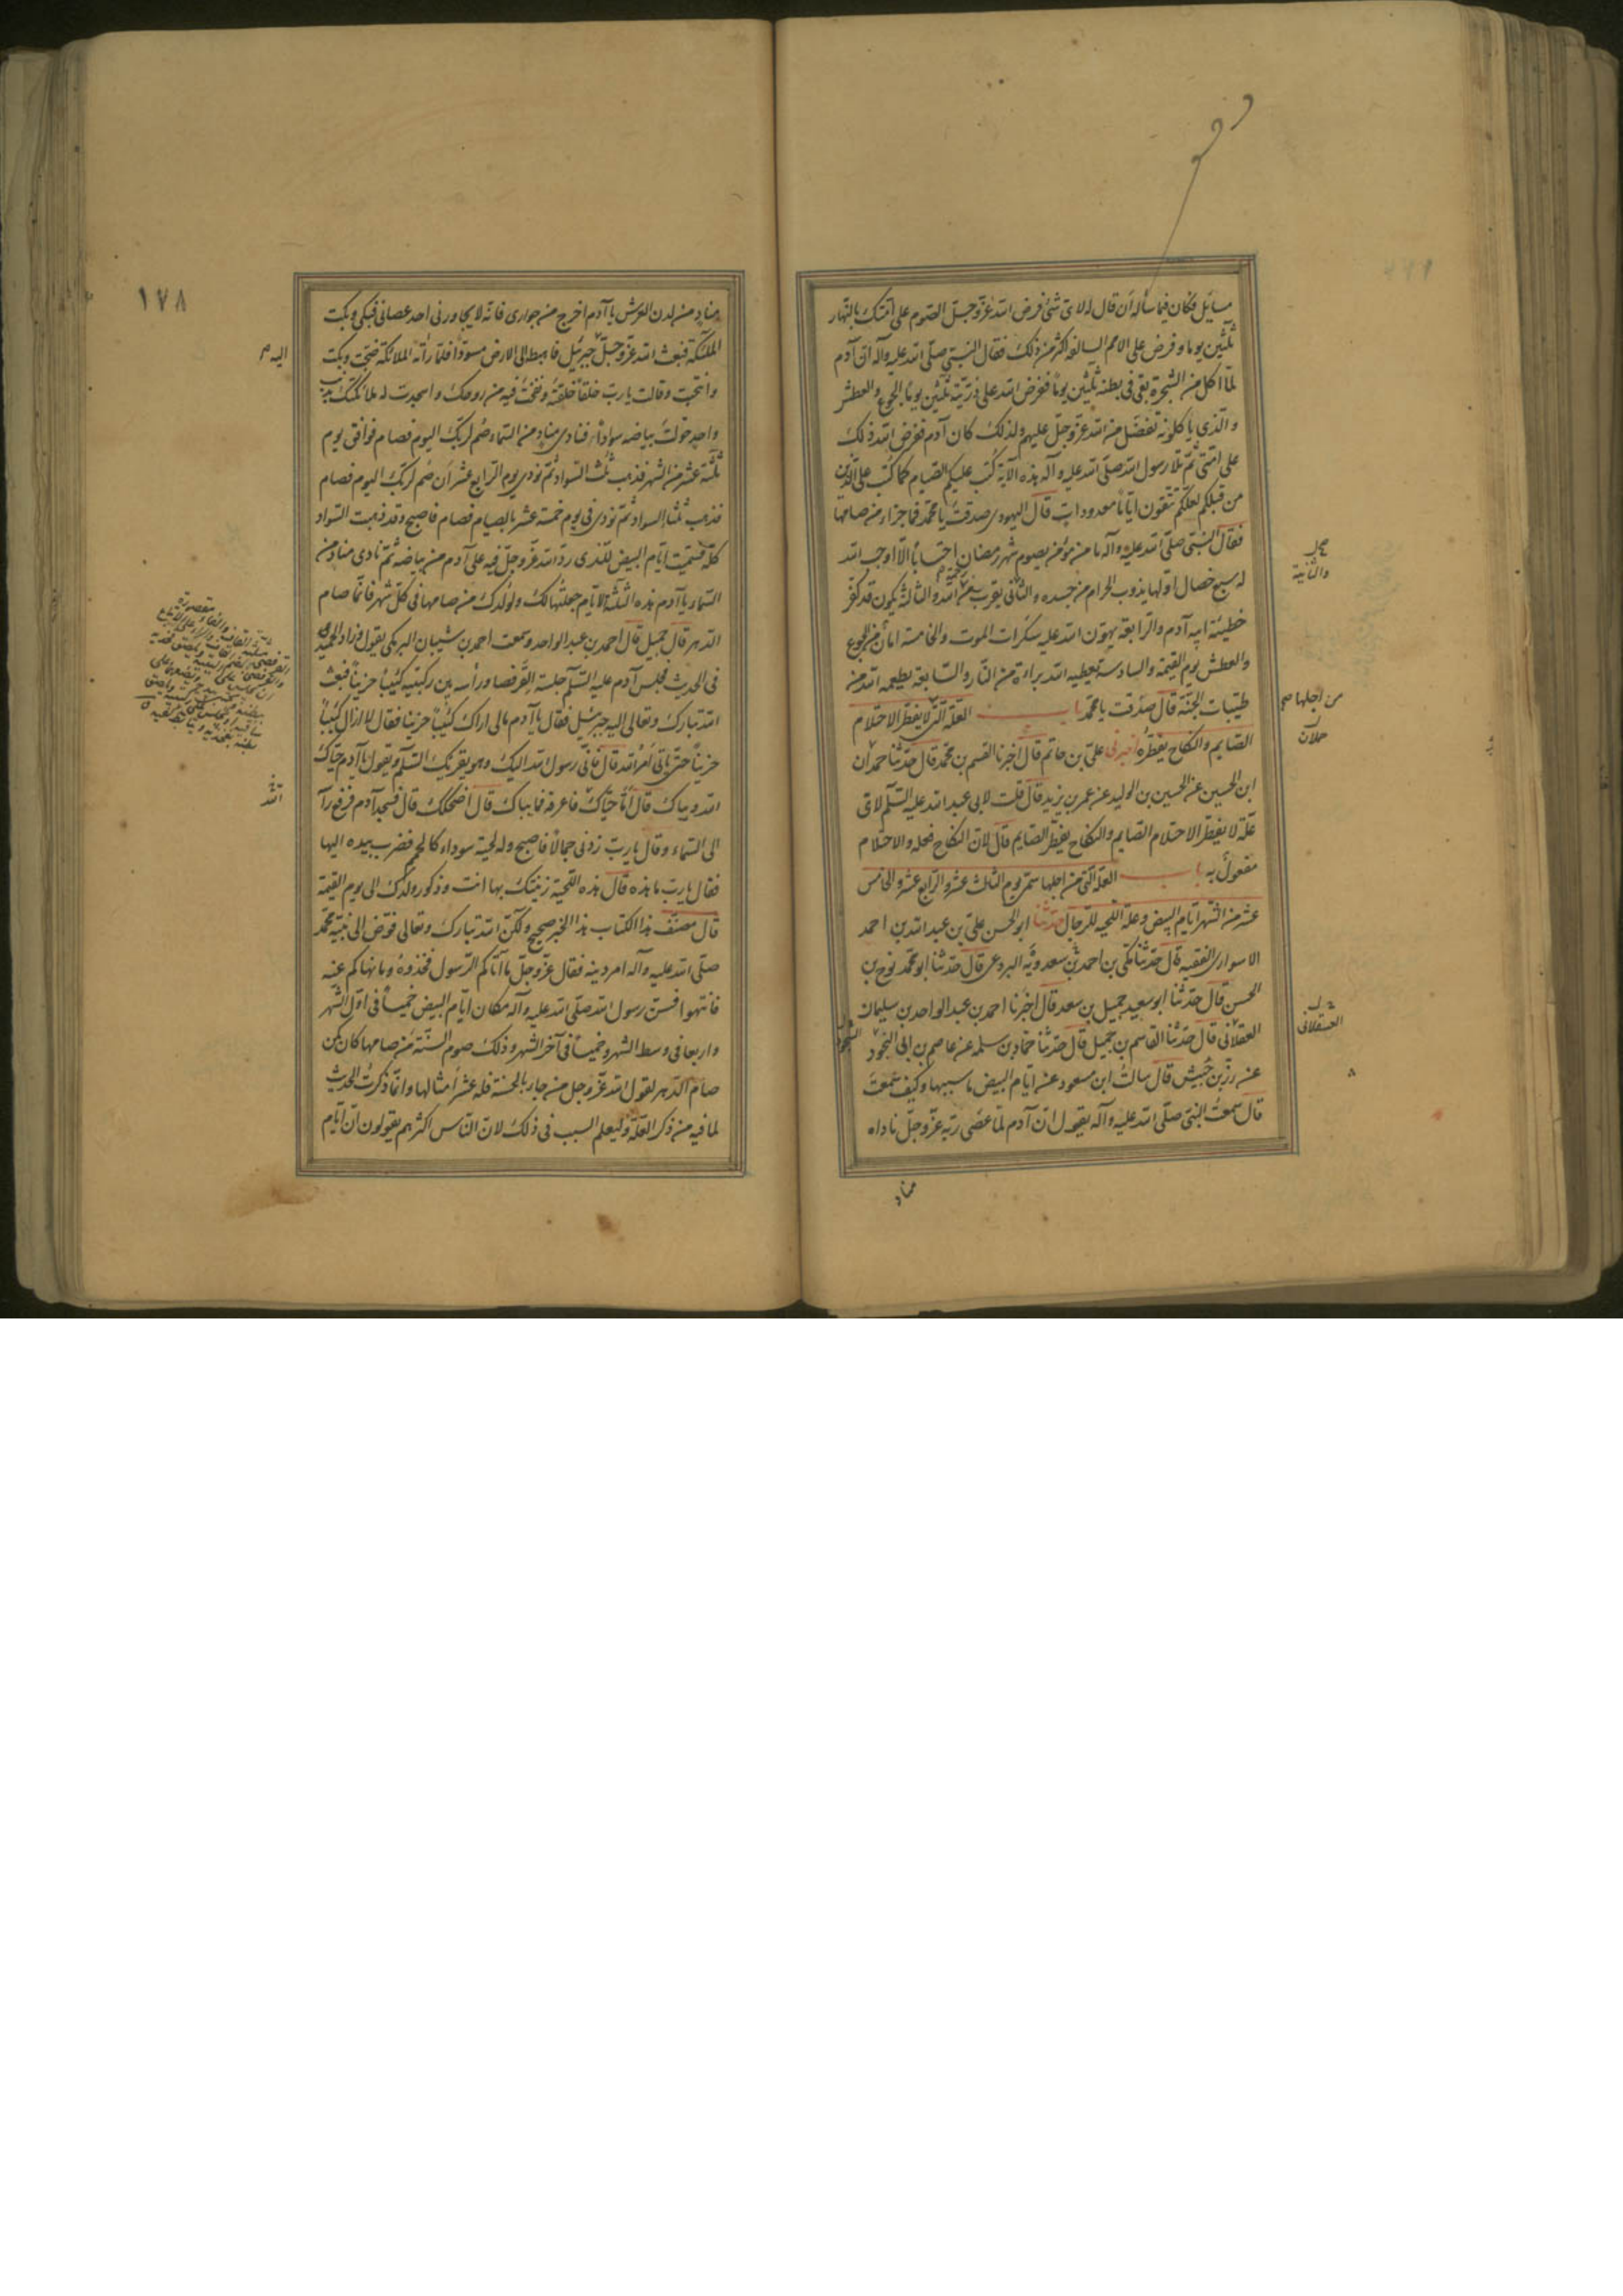 مسايل فكان فيما سأله ان قال له لاى شئ فرض الله عزّ وجلّ الصّوم على امّتك بالنّهار
ثلثين يوما و فرض على الامم السالفه اكثر من ذلك فقال النّبىّ صلّى الله عليه وآله انّ آدم
لمّا اكل من الشجرة بقى فى بطنه ثلثين يوماً ففرض الله على ذرّيّته ثلثين يوماً الجوع والعطش
والّذى ياكلونه تفضّل من الله عزّ وجلّ عليهم ولذلك كان آدم ففرض الله ذلك
على امّتى ثمّ تلا رسول الله صلّى الله عليه وآله هذه الآية كُتب عليكم الصّيام كما كُتب على الّذين
من قبلكم لعلّكم تتّقون ايّاماً معدودات قال اليهودى صدقت يا محمّد فما جزاء من صامها
فقال النّبىّ صلّى الله عليه وآله ما من مؤمن يصوم شهر رمضان احتساباً الّا اوجب الله
له سبع خصال اوّلها يذوب الحرام من جسده والثانى يقرب من رحمة الله والثالثة يكون قد كفّر
خطيئة ابيه آدم والرّابعة يهوّن الله عليه سكرات الموت والخامسة امان من الجوع
والعطش يوم القيمة والسادسة يعطيه الله براءة من النّار والسّابعة يطعمه الله من
طيّبات الجنّة قال صدقت يا محمّد باب العلّة الّتى لا يفطّر الاحتلام
الصّايم والنكاح يفطّره اخبرنى علىّ بن حاتم قال اخبرنا القسم بن محمّد قال حدّثنا حمدان
ابن الحسين عن الحسين بن الوليد عن عمر بن يزيد قال قلت لابى عبد الله عليه السّلم لاىّ
علّة لا يفطّر الاحتلام الصّايم والنكاح يفطّر الصّايم قال لانّ النكاح فعله والاحتلام
مفعول به باب العلّة الّتى من اجلها سمّى يوم الثالث عشر والرّابع عشر والخامس
عشر من الشهر ايّام البيض وعلّة اللّحيه للرّجال حدّثنا ابو الحسن علىّ بن عبد الله بن احمد
الاسوارى الفقيه قال حدّثنا مكّى بن احمد بن سعدويه البردعى قال حدّثنا ابو محمّد نوح بن
الحسن قال حدّثنا ابو سعيد جميل بن سعد قال اخبرنا احمد بن عبد الواحد بن سليمان
العقلانى قال حدّثنا القاسم بن جميل قال حدّثنا حمّاد بن سلمه عن عاصم بن ابى النجود
عن رزّ بن حُبيش قال سالتُ ابن مسعود عن ايّام البيض ما سببها وكيف سمعتَ
قال سمعتُ النّبىّ صلّى الله عليه وآله يقول انّ آدم لمّا عصى ربّه عزّ وجلّ ناداه
مناد
والثانية
من اجلها صح
حملان
العسقلانى
النجود
١٧٨
منادٍ من لدن العرش يا آدم اخرج من جوارى فانّه لا يجاورنى احد عصانى فبكى وبكت
الملئكة فبعث الله عزّ وجلّ جبرئيل فاهبط الى الارض مسودّاً فلمّا رأته الملائكة ضجّت وبكت
وانتحبت وقالت يا ربّ خلقاً خلقتَه ونفخت فيه من روحك واسجدت له ملائكتك بذنب
واحد حوّلت بياضه سواداً فنادى منادٍ من السّماء صُم لربّك اليوم فصام فوافق يوم
ثلثة عشر من الشهر فذهب ثلث السّواد ثمّ نودى يوم الرّابع عشر ان صُم لربّك اليوم فصام
فذهب ثلثا السواد ثمّ نودى فى يوم خمسة عشر بالصيام فصام فاصبح وقد ذهب السّواد
كلّه فسمّيت ايّام البيض للّذى ردّ الله عزّ وجلّ فيه على آدم من بياضه ثمّ نادى مناد من
السّماء يا آدم هذه الثّلثة الايّام جعلتُها لك ولولدك من صامها فى كلّ شهر فانّما صام
الدّهر قال جميل قال احمد بن عبد الواحد وسمعت احمد بن شيبان البرمكى يقول وزاد الحميدى
فى الحديث فجلس آدم عليه السّلم جلسة القرفصا ورأسه بين ركبتيه كئيباً حزيناً فبعث
الله تبارك وتعالى اليه جبرئيل فقال يا آدم مالى اراك كئيباً حزينا فقال لا ازال كئيباً
حزيناً حتّى ياتى امر الله قال فانّى رسول الله اليك وهو يقرئك السّلم ويقول يا آدم حيّاك
الله وبيّاك قال امّا حيّاك فاعرفه فما بيّاك قال اضحكك قال فسجد آدم فرفع رأسه
الى السّماء وقال يا ربّ زدنى جمالاً فاصبح وله لحية سوداء كالحمم فضرب بيده اليها
فقال يا ربّ ما هذه قال هذه اللّحية زيّنتك بها انت وذكور ولدك الى يوم القيمة
قال مصنّف هذا الكتاب هذا الخبر صحيح ولكنّ الله تبارك وتعالى فوّض الى نبيّه محمّد
صلّى الله عليه وآله امر دينه فقال عزّ وجلّ ما آتاكم الرّسول فخذوه وما نهاكم عنه
فانتهوا فسنّ رسول الله صلّى الله عليه وآله مكان ايّام البيض خميساً فى اوّل الشهر
واربعا فى وسط الشهر وخميساً فى آخر الشهر وذلك صوم السّنّة من صامها كان كمن
صام الدّهر لقول الله عزّ وجل من جاء بالحسنة فله عشر امثالها وانّما ذكرت الحديث
لما فيه من ذكر العلّة وليعلم السبب فى ذلك لانّ النّاس اكثرهم يقولون انّ ايّام
اليه م
الله